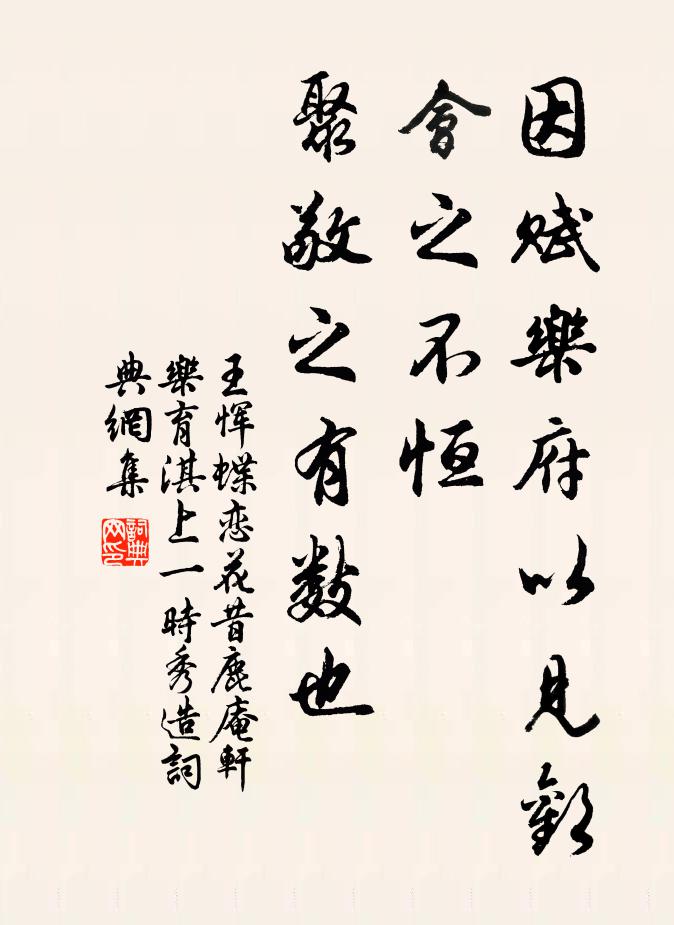 因賦樂府以見歡
會之不恒
聚散之有數也
王恽蝶恋花昔鹿庵軒
樂育淇上一時秀造詞
典網集
詞典
网印